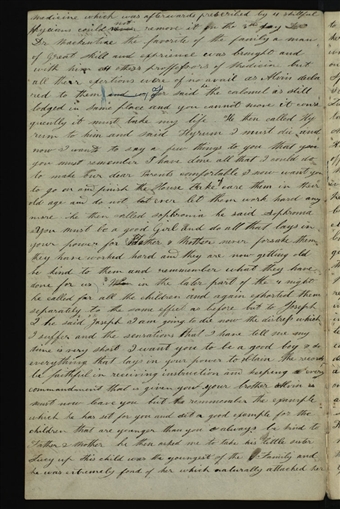 medicine which was afterwards prescribed by 4 skillful
Physicians could not remove it On the 3d day
Dr Mackentire the favorite of the family a man
of great skill and experience was brought and
with him 4 other proffessors of Medicine but
all their exertions were of no avail as Alvin decla
red to them said he the calomel is still
lodged in same place and you cannot move it conse
quently it must take my life He then called Hy
rum to him and said Hyrum I must die and
now I want to say a few things to you that you
you must remember I have done all that I could do
to make our dear Parents comfortable I now want you
to go on and finish the House take care them in their
old age and do not let ever let them work hard any
more He then called sophronia he said sophronia
you must be a good Girl and do all that lays in
your power for Father & Mother never forsake them
they have worked hard and they are now getting old
be kind to them and remmember what they have
done for us In the later part of the 4 night
he called for all the children and again exhorted them
separately to the same effect as before but to Joseph
he said Joseph I am going to die now the distress which
I suffer and the sensations that I have tell me my
time is very short I want you to be a good boy & do
everything that lays in your power to obtain the record
be faithful in receiving instruction and keeping every
commandment that is given you your brother Alvin
must now leave you but remmember the example
which he has set for you and set a good example for the
children that are younger than you & always be kind to
Father & Mother he then asked me to take his little sister
Lucy up this child was the youngest of the Family and
he was extremely fond of her which naturally attached her